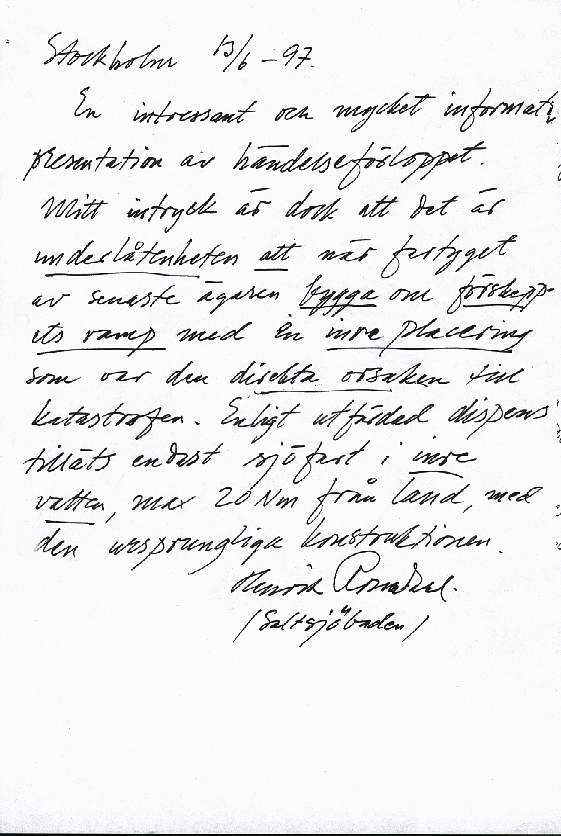 Stockholm 13/6 - 97.
En intressant och mycket informativ
presentation av händelseförloppet.
Mitt intryck är dock att det är
underlåtenheten att när fartyget
av senaste ägaren bygga om förskepp-
ets ramp med en inre placering
som var den direkta orsaken till
katastrofen. Enligt utfärdad dispens
tilläts endast sjöfart i inre
vatten, max 20 Nm från land, med
den ursprungliga konstruktionen.
Henrik
(Saltsjöbaden)